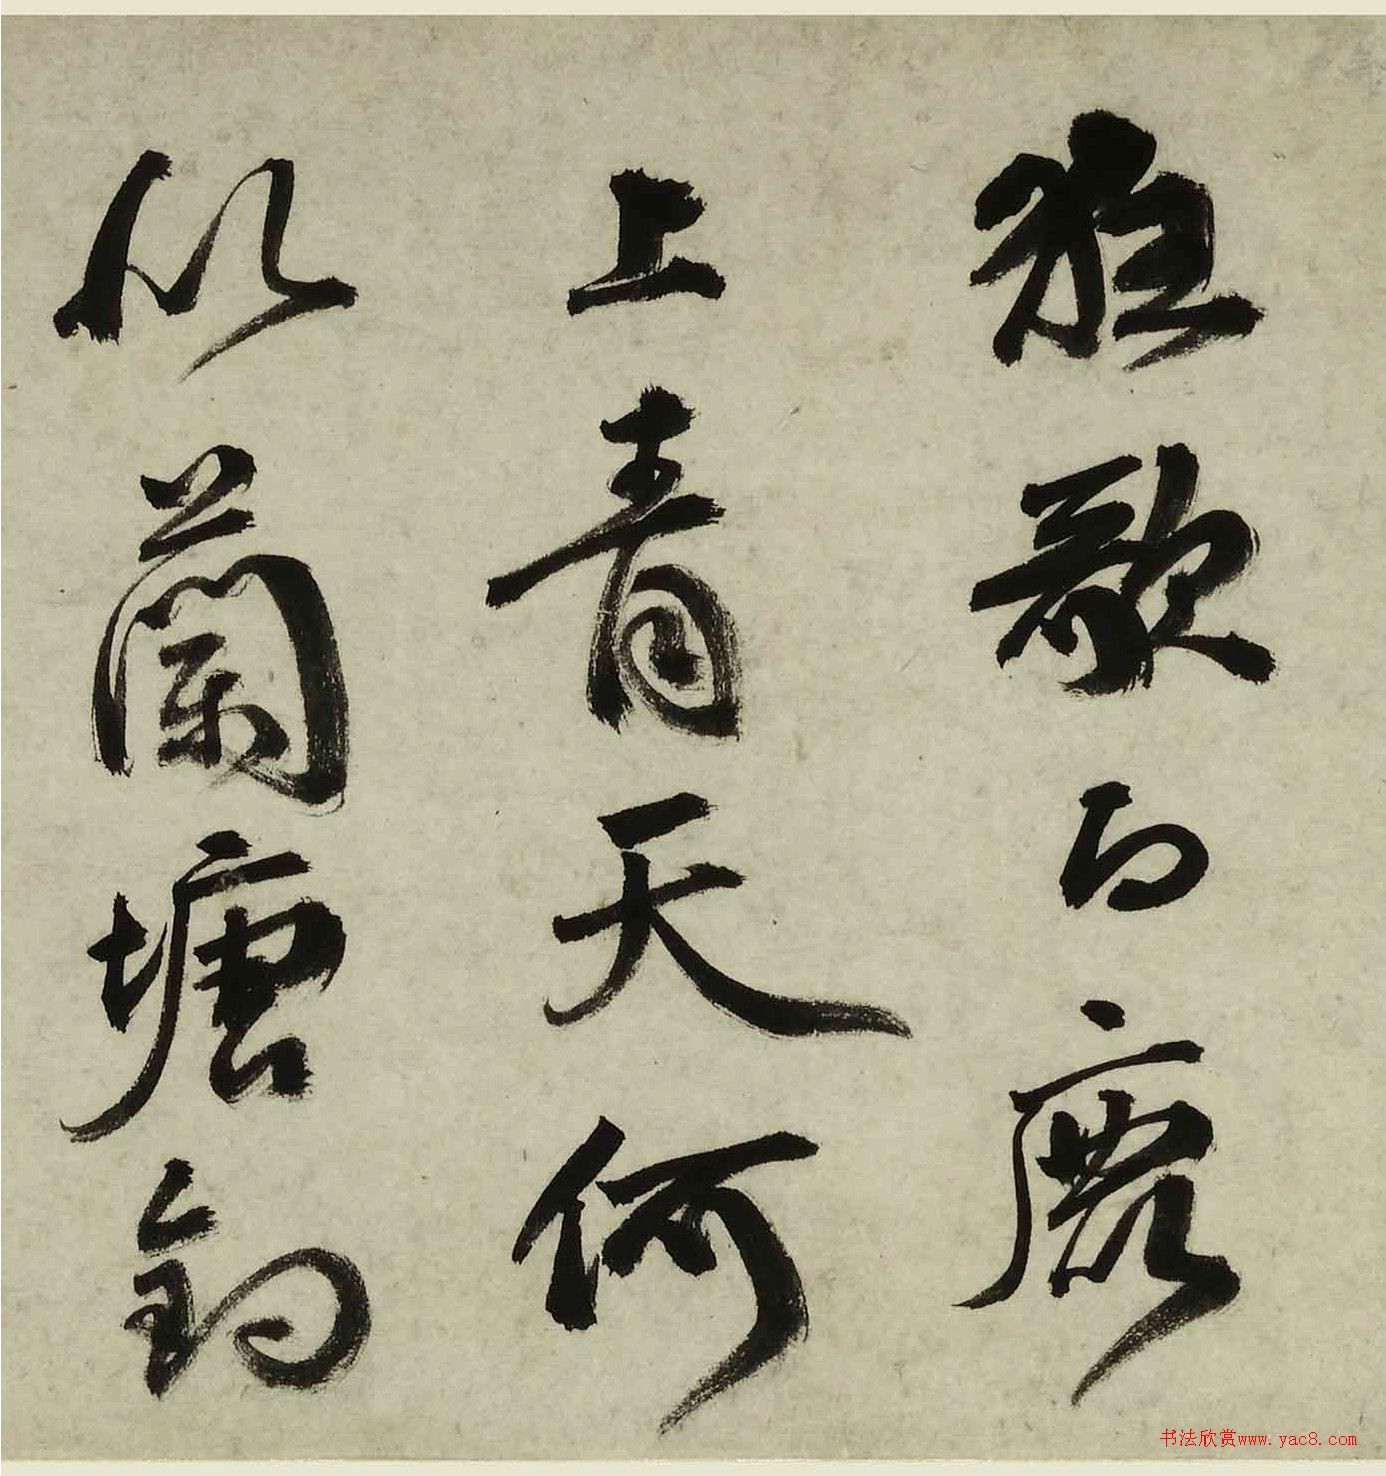 狂歌白鹿
上青天何
似蘭塘釣
书法欣赏www.yac8.com